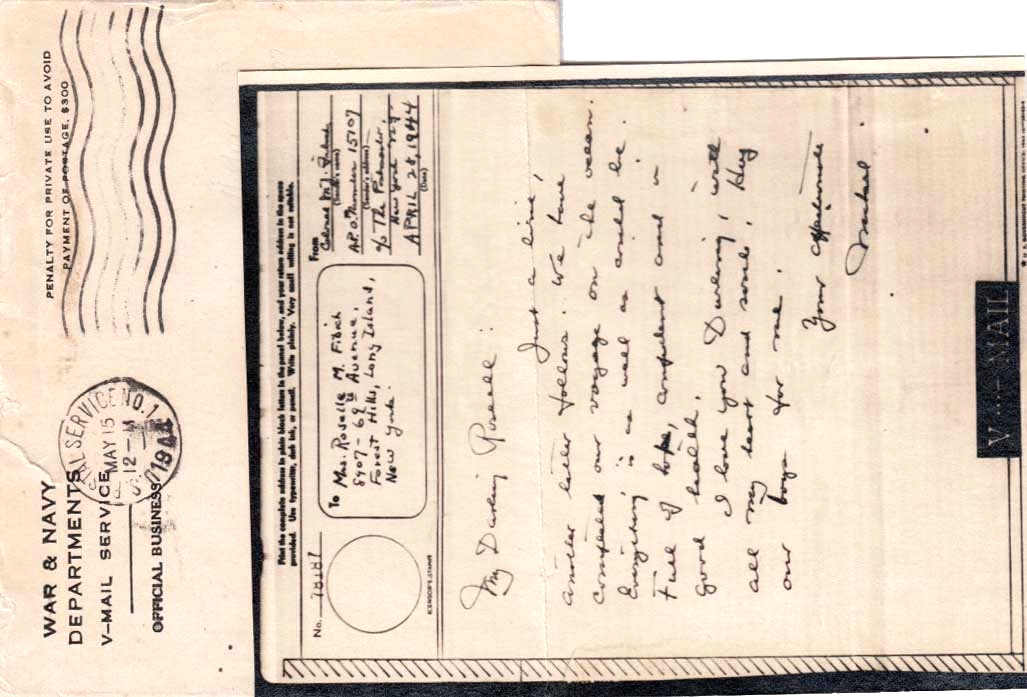 WAR & NAVY
DEPARTMENTS
V-MAIL SERVICE
OFFICIAL BUSINESS
PENALTY FOR PRIVATE USE TO AVOID
PAYMENT OF POSTAGE, $300
POSTAL SERVICE NO. 1
MAY 15
12-M
1944
Print the complete address in plain block letters in the panel below, and your return address in the space
provided. Use typewriter, dark ink, or pencil. Write plainly. Very small writing is not suitable.
No.
(CENSOR'S STAMP)
To Mrs. Roselle M. Fibich
8907-69th Avenue,
Forest Hills, Long Island,
New York.
From
Colonel M.J.
(Sender's name)
A.P.O. Number 15107
(Sender's address)
c/o The Postmaster,
New York N.Y.
APRIL 1944
(Date)
My Darling Roselle:
Just a line,
another letter follows. We have
completed our voyage on the ocean.
Everything is as well as could be.
Full of hope, confident and in
good health.
I love you Darling, with
all my heart and soul. Hug
our boys for me.
Your affectionate
Michael.
V···-MAIL